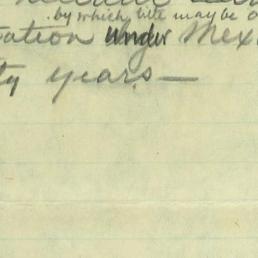 by which title may be
ation under Mex
ty years —